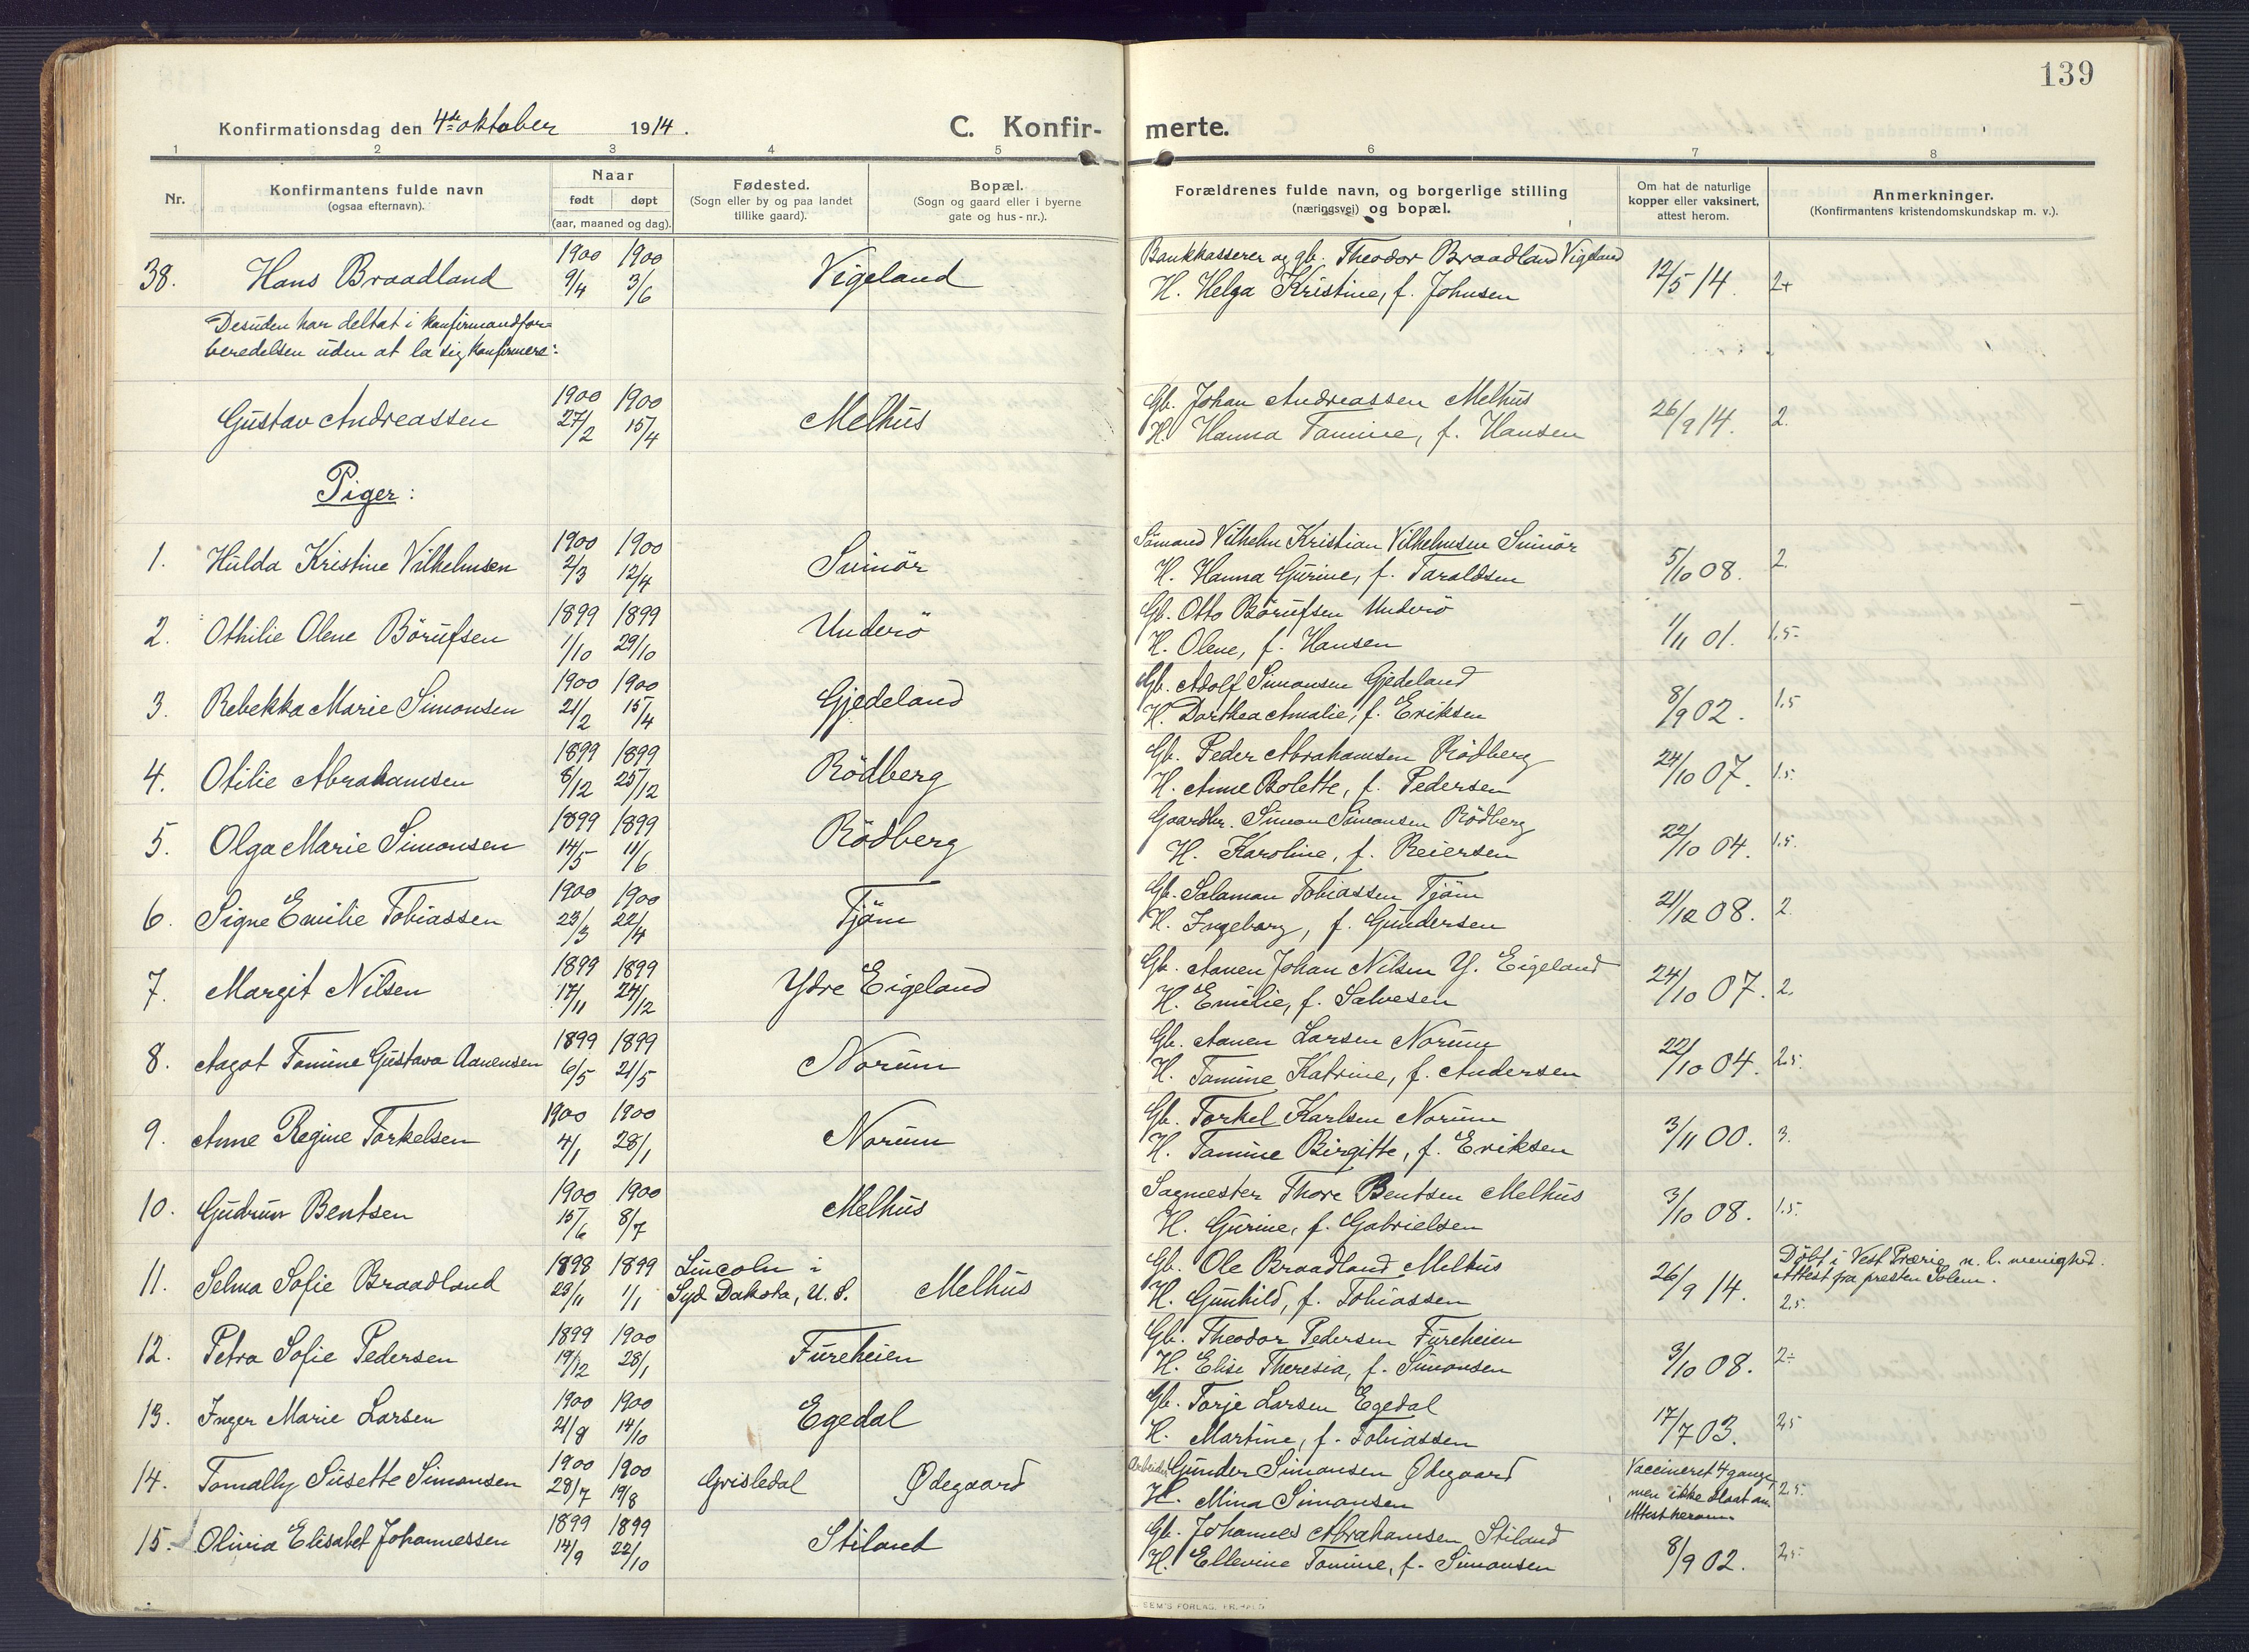 139
Konfirmationsdag den 4de oktober 1914.
C. Konfir-
merte.
1 2 3 4 5 6 7 8
Nr.
Konfirmantens fulde navn
(ogsaa efternavn).
Naar
født døpt
(aar, maaned og dag).
Fødested.
(Sogn eller by og paa landet
tillike gaard).
Bopæl.
(Sogn og gaard eller i byerne
gate og hus-nr.).
Forældrenes fulde navn, og borgerlige stilling
(næringsvei) og bopæl.
Om hat de naturlige
kopper eller vaksinert,
attest herom.
Anmerkninger.
(Konfirmantens kristendomskundskap m. v.).
38. Hans Braadland 1900 9/4 1900 3/6 Vigeland
Bankkasserer og gb. Theodor Braadland Vigeland
H. Helga Kristine, f. Johnsen 12/5 14. 2+
Desuden har deltat i konfirmandfor-
beredelsen uden at la sig konfirmere:
Gustav Andreassen 1900 27/2 1900 15/4 Melhus
Gb. Johan Andreassen Melhus
H. Hanna Tomine, f. Hansen 26/9 14. 2.
Piger:
1. Hulda Kristine Vilhelmsen 1900 2/3 1900 12/4 Svinör
Sömand Vilhelm Kristian Vilhelmsen Svinör
H. Hanna Gurine, f. Taraldsen 5/10 08. 2.
2. Othilie Olene Börufsen 1899 1/10 1899 29/10 Underö
Gb. Otto Börufsen Underö
H. Olene, f. Hansen 1/11 01. 1.5-
3. Rebekka Marie Simonsen 1900 21/2 1900 15/4 Gjedeland
Gb. Adolf Simonsen Gjedeland
H. Dorthea Amalie, f. Eriksen 8/9 02. 1.5
4. Otilie Abrahamsen 1899 8/12 1899 25/12 Rödberg
Gb. Peder Abrahamsen Rödberg
H. Anne Bolette, f. Pedersen 24/10 07. 1.5.
5. Olga Marie Simonsen 1899 14/5 1899 11/6 Rödberg
Gaardbr. Simon Simonsen Rödberg
H. Karoline, f. Reiersen 22/10 04. 1.5.
6. Signe Emilie Tobiassen 1900 23/3 1900 22/4 Tjöm
Gb. Salamon Tobiassen Tjöm
H. Ingeborg, f. Gundersen 21/12 08. 2.
7. Margit Nilsen 1899 17/11 1899 24/12 Ydre Eigeland
Gb. Aanen Johan Nilsen Y. Eigeland
H. Emilie, f. Salvesen 24/10 07. 2.
8. Aagot Tomine Gustava Aanensen 1899 6/5 1899 21/5 Norum
Gb. Aanen Larsen Norum
H. Tomine Katrine, f. Andersen 22/10 04. 2.5.
9. Anne Regine Torkelsen 1900 4/1 1900 28/1 Norum
Gb. Torkel Karlsen Norum
H. Tomine Birgitte, f. Eriksen 3/11 00. 3.
10. Gudrun Bentsen 1900 15/6 1900 8/7 Melhus
Sagmester Thore Bentsen Melhus
H. Gurine, f. Gabrielsen 3/10 08. 1.5.
11. Selma Sofie Braadland 1898 23/11 1899 1/1 Lincoln i
Syd Dakota, U. S. Melhus
Gb. Ole Braadland Melhus
H. Gunhild, f. Tobiassen 26/9 14.
Döbt i Vest Prærie n. l. menighed.
Attest fra presten Solem.
2.5.
12. Petra Sofie Pedersen 1899 19/12 1900 28/1 Fureheien
Gb. Theodor Pedersen Fureheien
H. Elise Theresia, f. Simonsen 3/10 08. 2÷
13. Inger Marie Larsen 1900 21/8 1900 14/10 Egedal
Gb. Torje Larsen Egedal
H. Martine, f. Tobiassen 17/7 03. 2,5
14. Tomally Susette Simonsen 1900 28/7 1900 19/8 Grisledal Ødegaard
Arbeider Gunder Simonsen Ødegaard
H. Mina Simonsen
Vaccineret 4 gange,
men ikke slaat an.
Attest herom.
2.5.
15. Olivia Elisabet Johannessen 1899 14/9 1899 22/10 Stiland
Gb. Johannes Abrahamsen Stiland
H. Ellevine Tomine, f. Simonsen 8/9 02. 2,5.
SEM'S FORLAG, FR.HALD